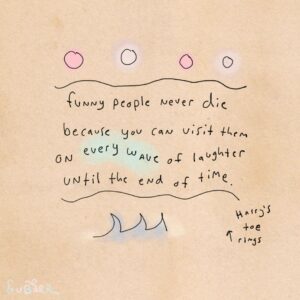 funny people never die
because you can visit them
on every wave of laughter
until the end of time.
Harry's
toe
rings